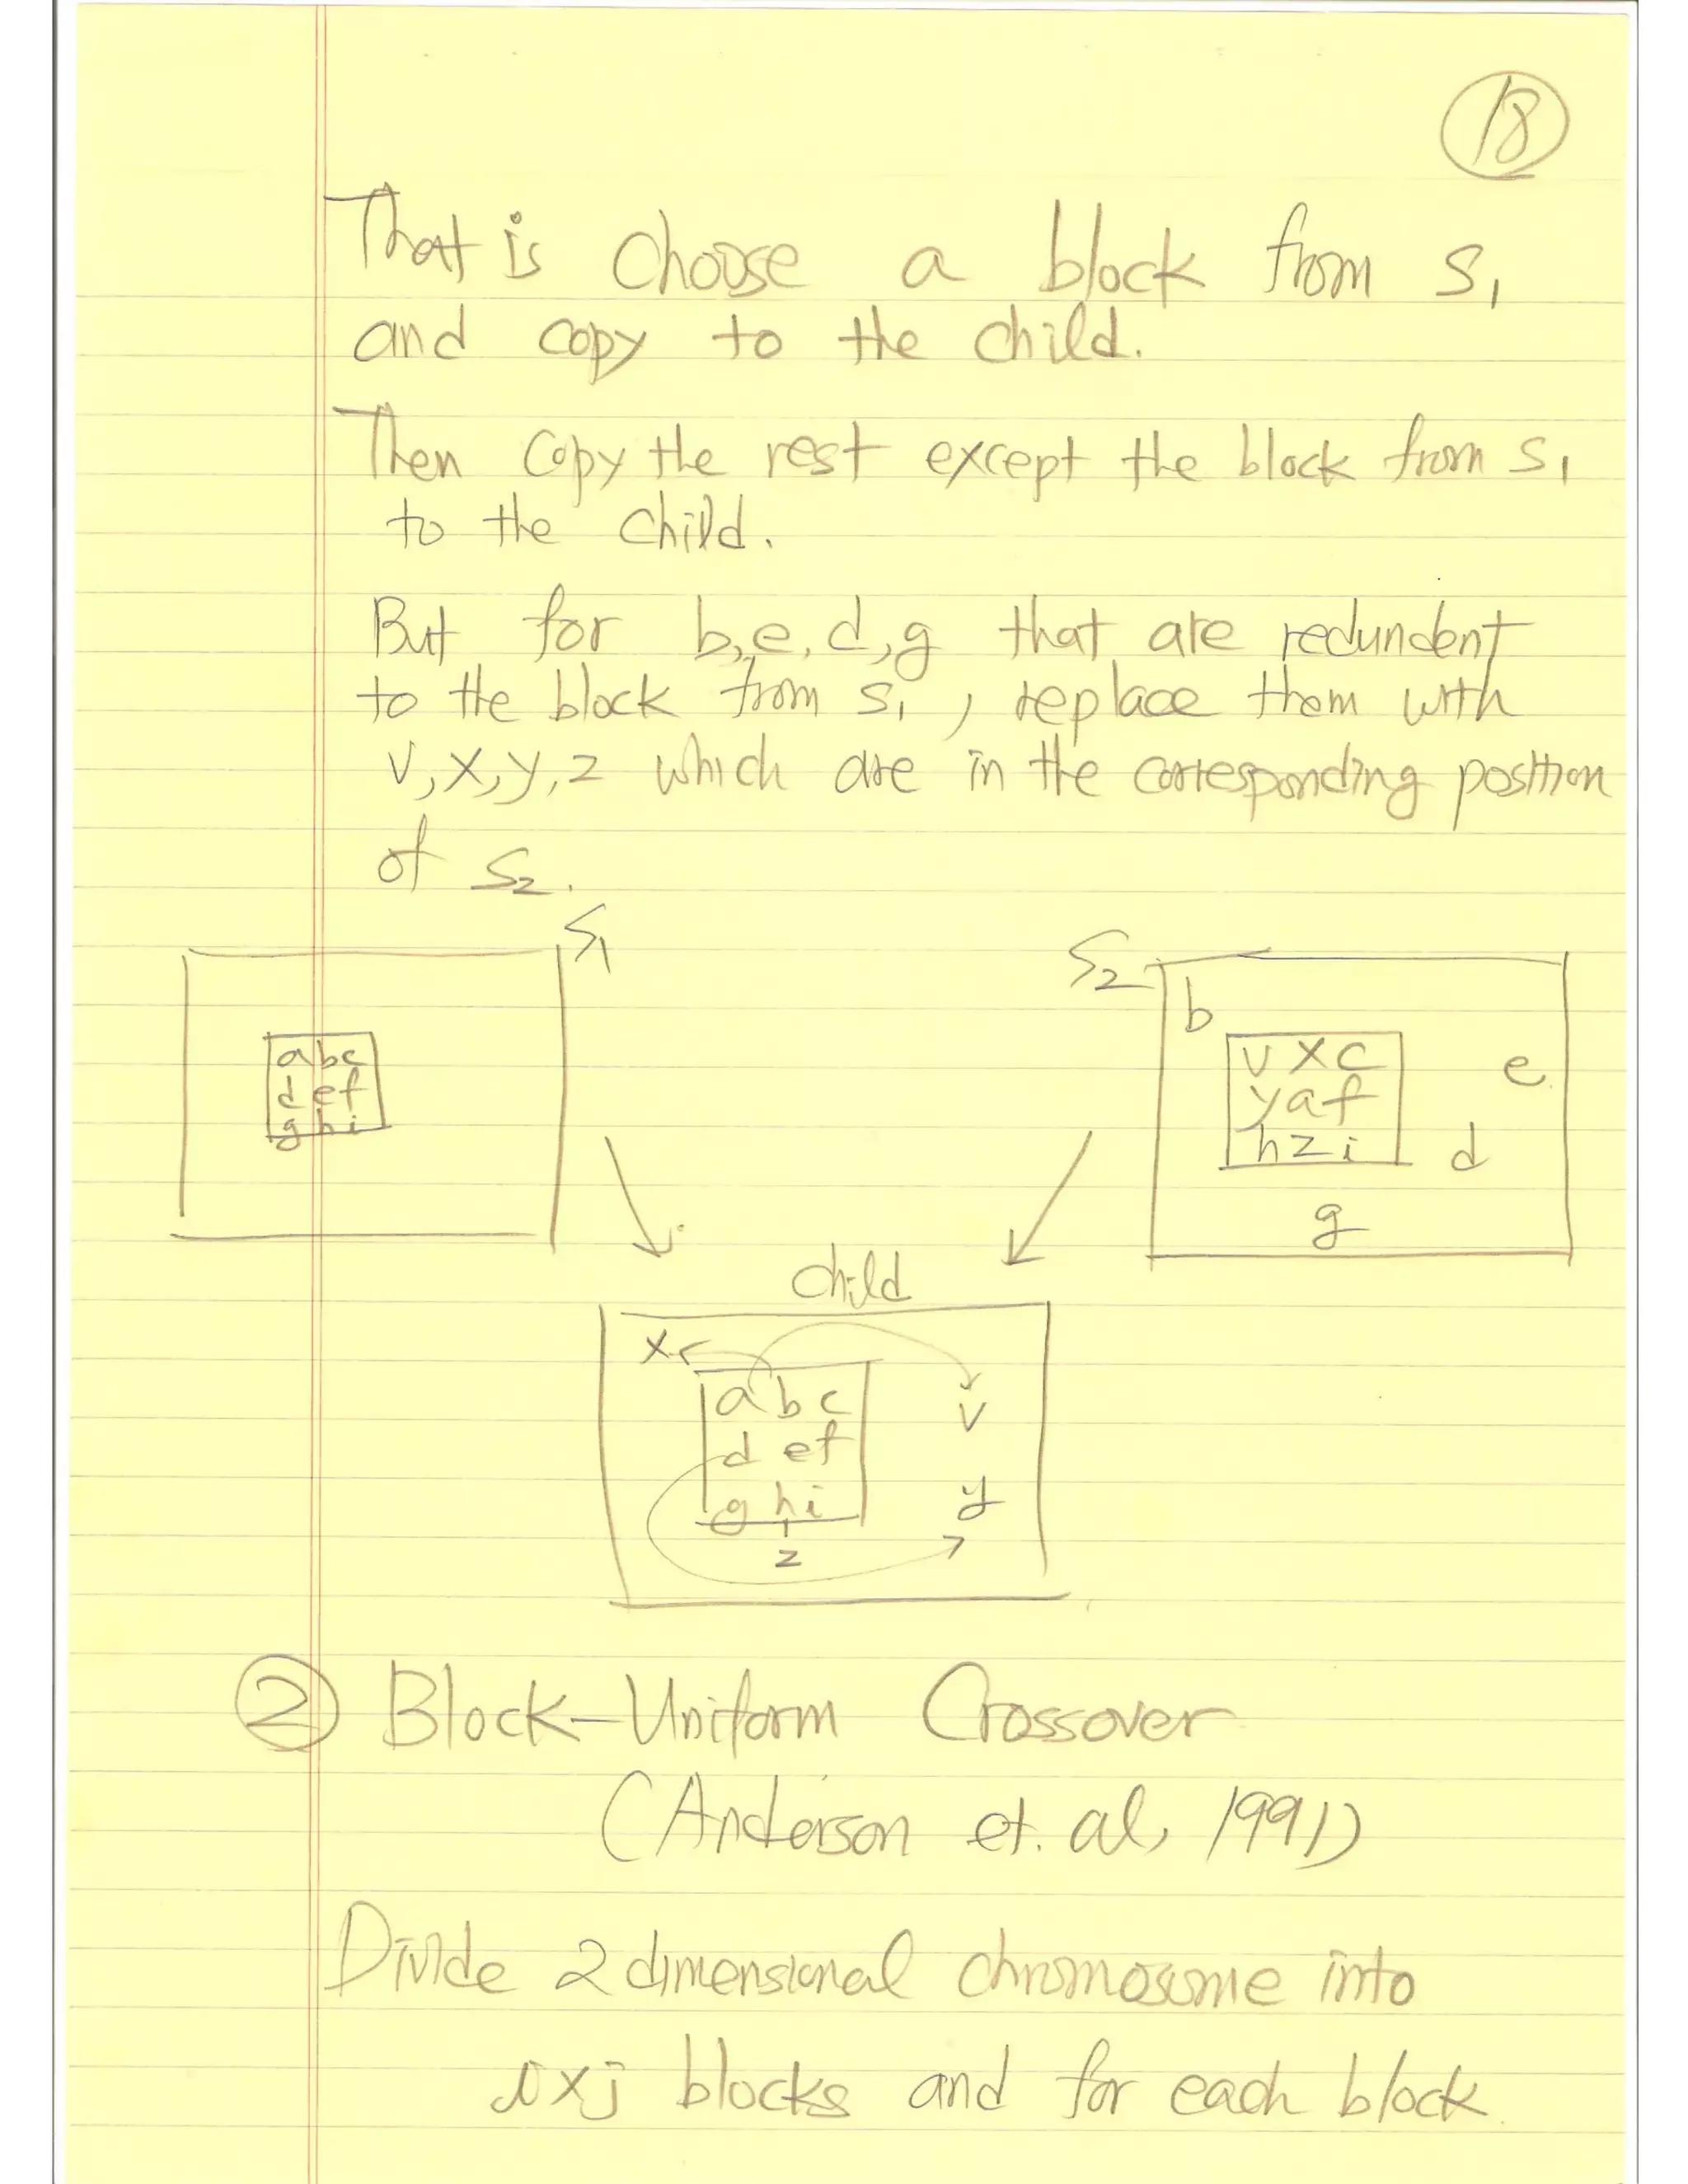 18
That is choose a block from S1
and copy to the child.
Then copy the rest except the block from S1
to the child.
But for b,e,d,g that are redundent
to the block from S1, replace them with
v,x,y,z which are in the corresponding position
of S2.
S1
abc
def
ghi
S2
b
vxc
yaf
hzi
e
d
g
child
x
abc
def
ghi
v
y
z
② Block-Uniform Crossover
(Anderson et. al, 1991)
Divide 2 dimensional chromosome into
ixj blocks and for each block